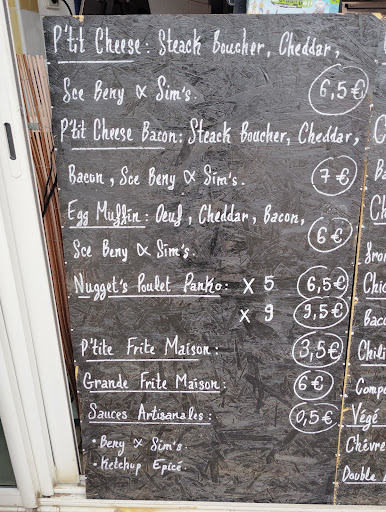 P'tit Cheese : Steack Boucher, Cheddar,
Sce Beny & Sim's. 6,5€
P'tit Cheese Bacon : Steack Boucher, Cheddar,
Bacon, Sce Beny & Sim's. 7€
Egg Muffin : Oeuf, Cheddar, Bacon,
Sce Beny & Sim's. 6€
Nugget's Poulet Panko : x 5 6,5€
x 9 9,5€
P'tite Frite Maison : 3,5€
Grande Frite Maison : 6€
Sauces Artisanales : 0,5€
• Beny & Sim's.
• Ketchup Epicé.
Chili
Végé
Chèvre
Double